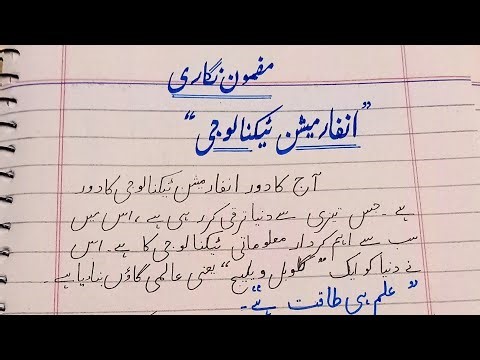 مضمون نگاری
”انفارمیشن ٹیکنالوجی“
آج کا دور انفارمیشن ٹیکنالوجی کا دور
ہے۔ جس تیزی سے دنیا ترقی کر رہی ہے، اس میں
سب سے اہم کردار معلوماتی ٹیکنالوجی کا ہے۔ اس
نے دنیا کو ایک ”گلوبل ویلیج“ یعنی عالمی گاؤں بنا دیا ہے۔
”علم ہی طاقت ہے“۔